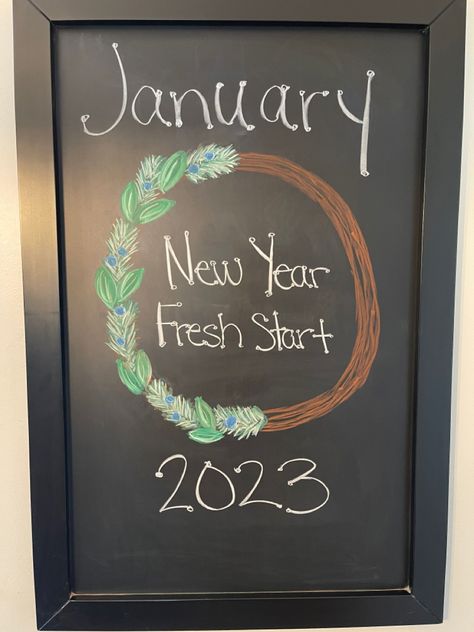 January
New Year
Fresh Start
2023